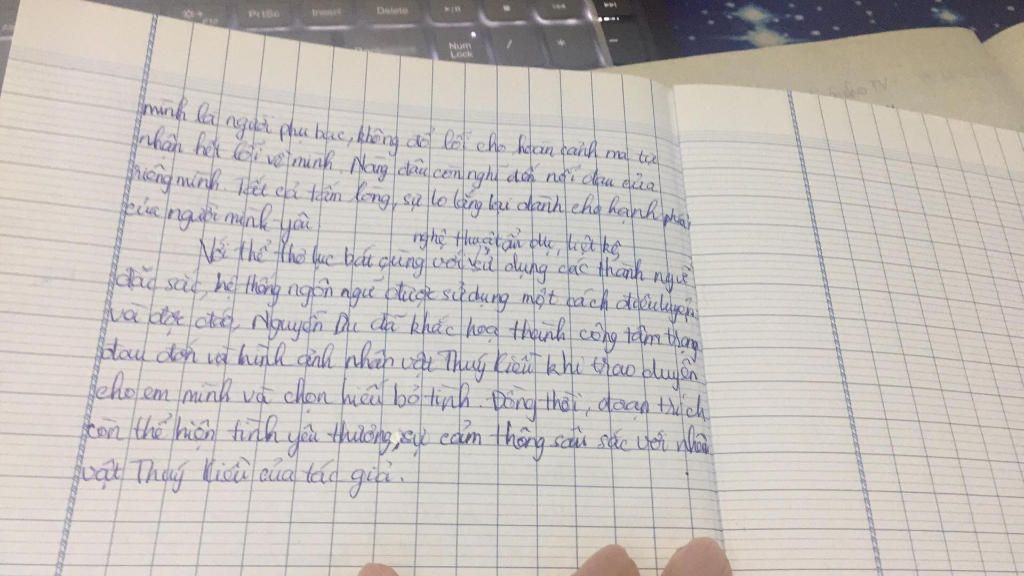 PrtSc
Insert
Delete
Num
Lock
/
*
mình là người phụ bạc, không đổ lỗi cho hoàn cảnh mà tự
nhận hết lỗi về mình. Nàng đâu còn nghĩ đến nỗi đau của
riêng mình. Tất cả tấm lòng, sự lo lắng lại dành cho hạnh phúc
của người mình yêu
nghệ thuật ẩn dụ, liệt kê,
Với thể thơ lục bát cùng với sử dụng các thành ngữ
đặc sắc, hệ thống ngôn ngữ được sử dụng một cách điêu luyện
và độc đáo, Nguyễn Du đã khắc hoạ thành công tâm trạng
đau đớn và hình ảnh nhân vật Thuý Kiều khi trao duyên
cho em mình và chọn hiếu bỏ tình. Đồng thời, đoạn trích
còn thể hiện tình yêu thương, sự cảm thông sâu sắc với nhân
vật Thuý Kiều của tác giả.